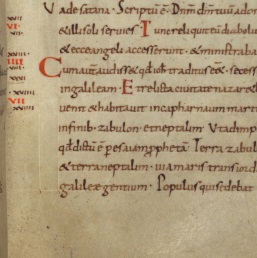 Vade satana. Scriptū ē. Dnm dm tuum ador
& illi soli servies Tunc reliquit eū diabolus
& ecce angeli accesserunt. & ministraba
Cum aut audiss& qd ioh traditus eē. secess
in galileam. Et relicta civitate nazar&
venit & habitavit in capharnaum marit
in finib; zabulon et neptalim. Ut adimp
qd dictū ē per esaiam pph&ā. Terra zabul
& terra neptalim. via maris trans iord
galileæ gentium. Populus qui sedebat